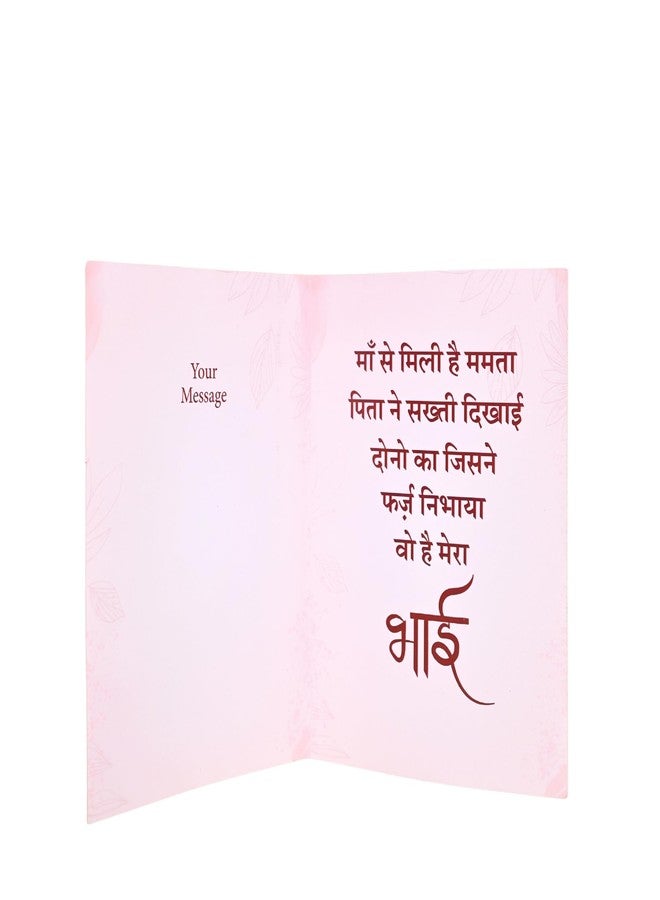 Your
Message
माँ से मिली है ममता
पिता ने सख्ती दिखाई
दोनो का जिसने
फर्ज़ निभाया
वो है मेरा
भाई